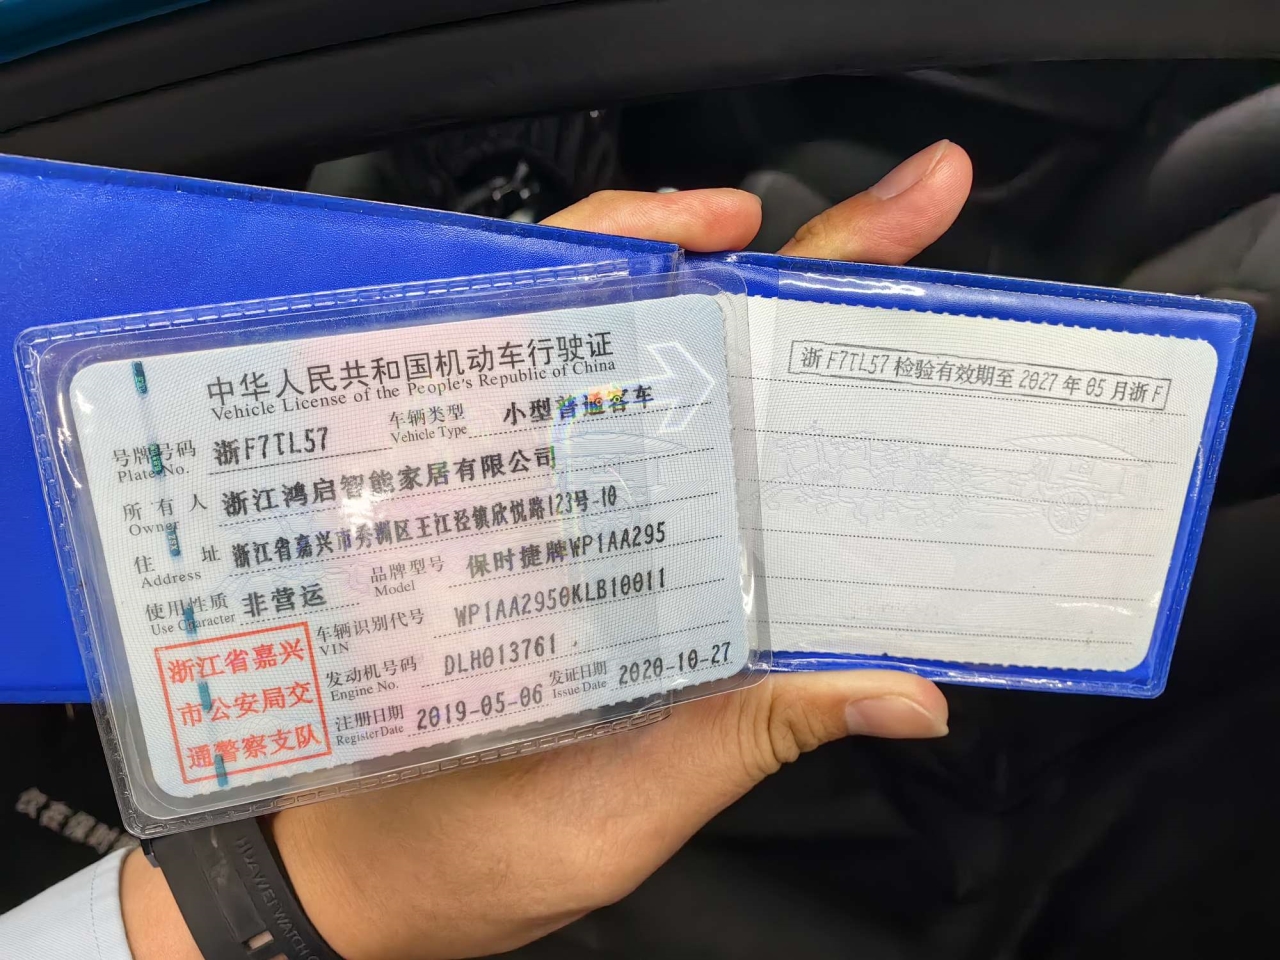 中华人民共和国机动车行驶证
Vehicle License of the People's Republic of China
号牌号码 浙F7TL57 车辆类型 小型普通客车
Plate No. Vehicle Type
所有人 浙江鸿启智能家居有限公司
Owner
住址 浙江省嘉兴市秀洲区王江泾镇欣悦路123号-10
Address
使用性质 非营运 品牌型号 保时捷牌WP1AA295
Use Character Model
车辆识别代号 WP1AA2950KLB10011
VIN
发动机号码 DLH013761
Engine No.
注册日期 2019-05-06 发证日期 2020-10-27
Register Date Issue Date
浙江省嘉兴
市公安局交
通警察支队
浙F7TL57检验有效期至2027年05月浙F
HUAWEI WATCH